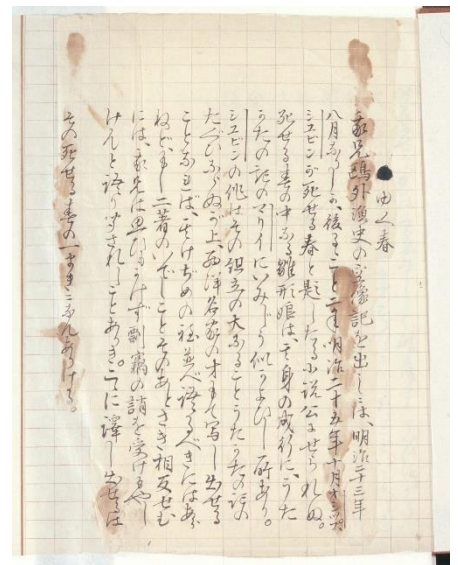 ●ゆく春
家兄鴎外漁史の 記を出しゝは、明治二十三年
八月なりしが、後るゝこと二年明治二十五年十月
シユビンが死せる春と題したる小説公にせられぬ。
死せる春の中なる雛形娘は、其身の成行に、うた
かたの記のマリイにいみじう似かよひし所あり。
シユビンの作はその組立の大なることうたかたの記の
たぐひならぬが上、西洋名家の才もて写し出せる
ことなれば、けぢめの程並べ語るべきにはあら
ねど、もし二著のいでしことそのあとさき相反せむ
には、家兄は思ひもかけず剽竊の誚を受けもやし
けんと語り聞されしことありき。こゝに譯し出せるは
その死せる春の一 なんありける。